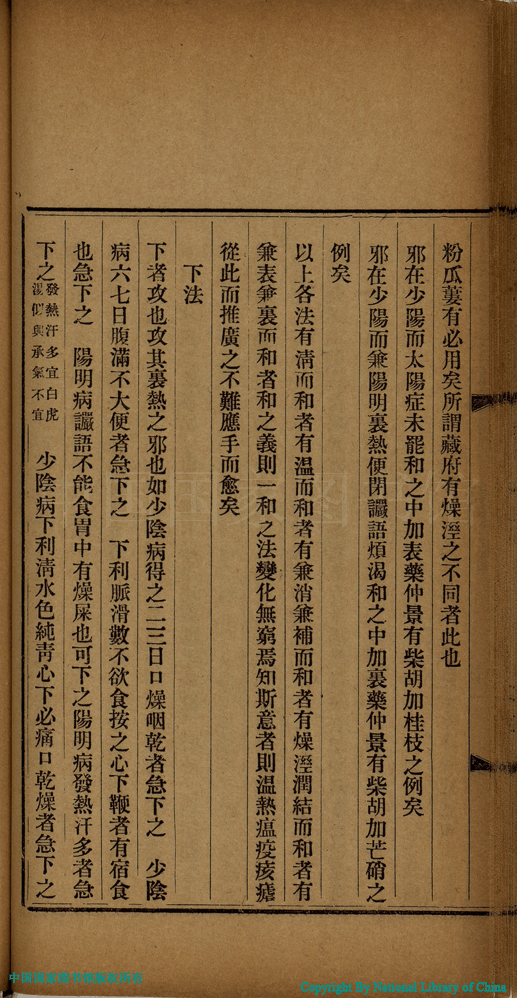 粉瓜蔞有必用矣所謂藏府有燥溼之不同者此也
邪在少陽而太陽症未罷和之中加表藥仲景有柴胡加桂枝之例矣
邪在少陽而兼陽明裏熱便閉讝語煩渴和之中加裏藥仲景有柴胡加芒硝之
例矣
以上各法有清而和者有温而和者有兼消兼補而和者有燥溼潤結而和者有
兼表兼裏而和者和之義則一和之法變化無窮焉知斯意者則温熱瘟疫痎瘧
從此而推廣之不難應手而愈矣
下法
下者攻也攻其裏熱之邪也如少陰病得之二三日口燥咽乾者急下之 少陰
病六七日腹滿不大便者急下之 下利脈滑數不欲食按之心下鞕者有宿食
也急下之 陽明病讝語不能食胃中有燥屎也可下之陽明病發熱汗多者急
下之發熱汗多宜白虎湯似與承氣不宜 少陰病下利清水色純青心下必痛口乾燥者急下之
中国国家图书馆版权所有
Copyright By National Library of China